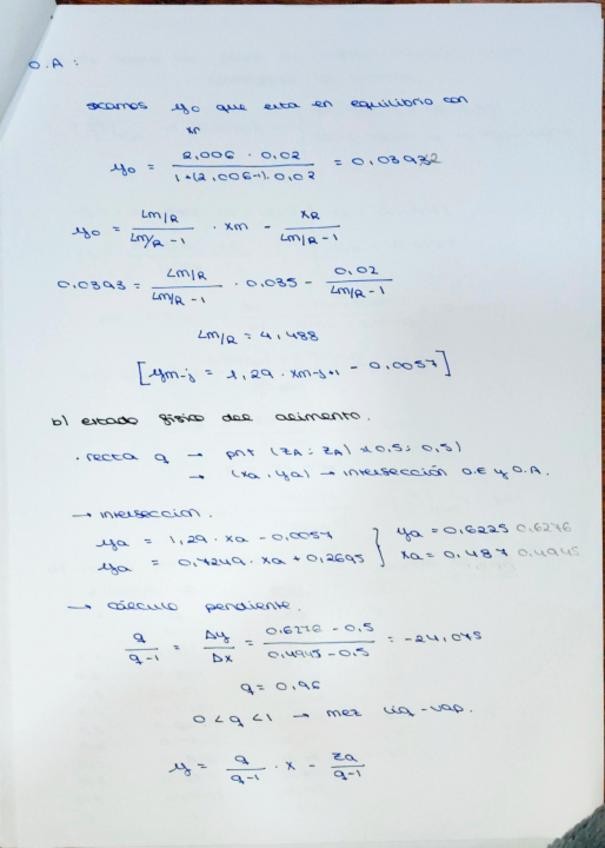 O.A :
sacamos yo que esta en equilibrio con
xr
yo = 2,006 · 0,02 / 1+(2,006-1)·0,02 = 0,03932
yo = Lm/R / Lm/R - 1 · xm - xR / Lm/R - 1
0,0393 = Lm/R / Lm/R - 1 · 0,035 - 0,02 / Lm/R - 1
Lm/R = 4,488
[ym-j = 1,29 · xm-j+1 - 0,0057]
b) estado fisico del alimento.
· recta q → pnt (ZA; ZA) 0,5; 0,5)
→ (xa, ya) → intersección O.E y O.A.
→ interseccion.
ya = 1,29 · xa - 0,0057 } ya = 0,6225 0,6276
ya = 0,7249 · xa + 0,2695 xa = 0,487 0,4945
→ cálculo pendiente.
q / q-1 = Δy / Δx = 0,6276 - 0,5 / 0,4945 - 0,5 = -24,075
q = 0,96
0 < q < 1 → mez liq - vap.
y = q / q-1 · x - za / q-1